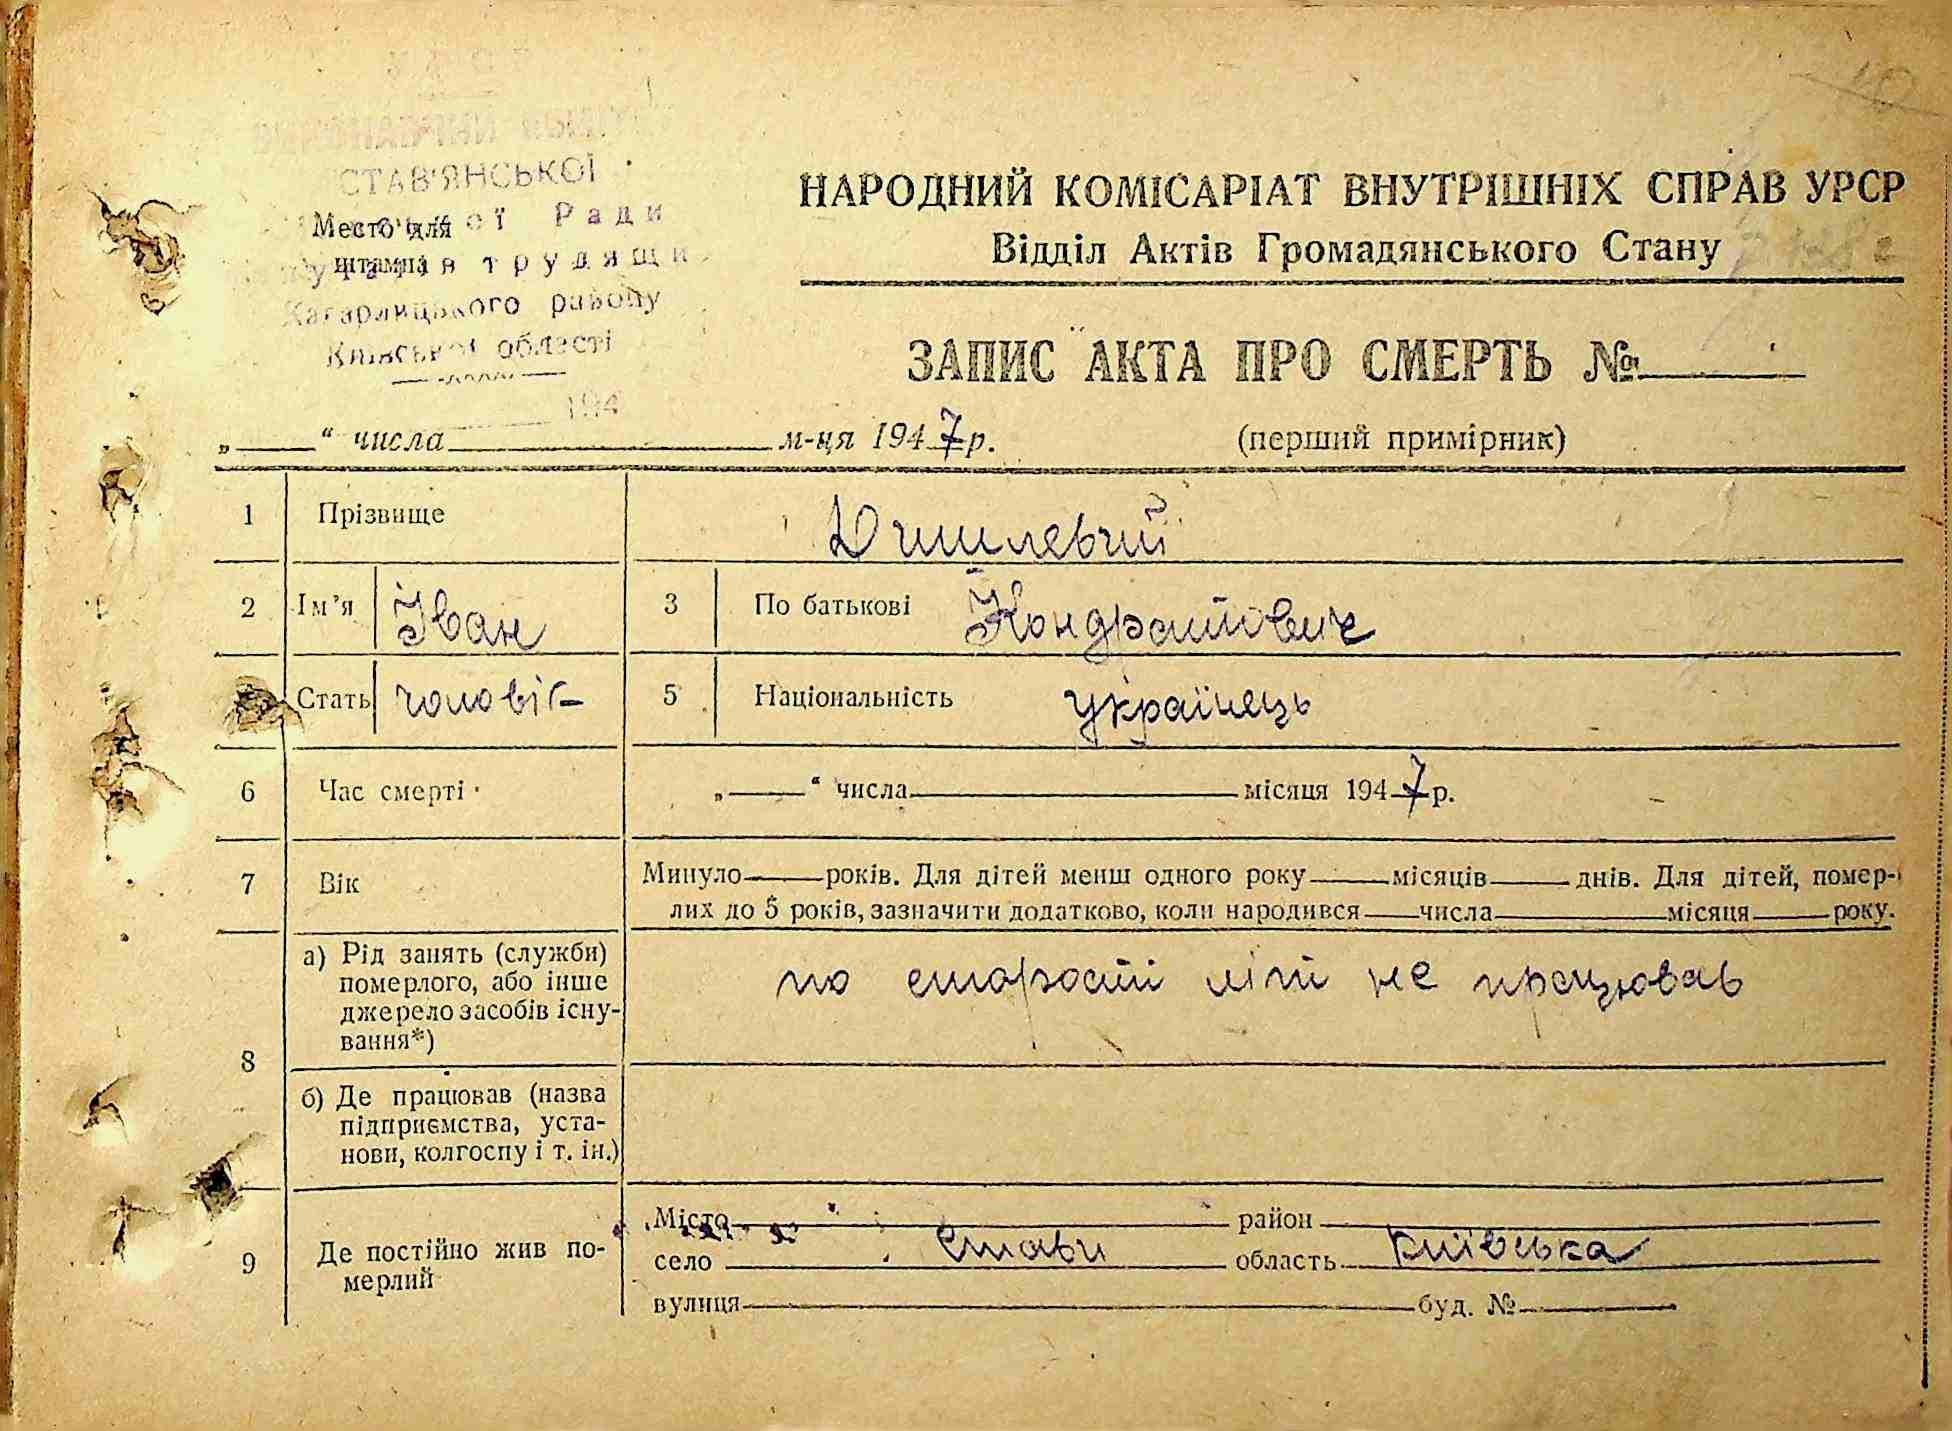 СТАВ'ЯНСЬКОЇ
Место для
штампа
Ради
трудящи
Кагарлицького району
Київської області
194
НАРОДНИЙ КОМІСАРІАТ ВНУТРІШНІХ СПРАВ УРСР
Відділ Актів Громадянського Стану
ЗАПИС АКТА ПРО СМЕРТЬ №
„ “ числа м-ця 1947 р.
(перший примірник)
1 Прізвище Дишлевий
2 Ім'я Іван 3 По батькові Кондратович
Стать чоловік 5 Національність українець
6 Час смерті „ “ числа місяця 1947 р.
7 Вік Минуло років. Для дітей менш одного року місяців днів. Для дітей, помер-
лих до 5 років, зазначити додатково, коли народився числа місяця року.
8 а) Рід занять (служби)
померлого, або інше
джерело засобів існу-
вання*)
по старості літ не працював
б) Де працював (назва
підприємства, уста-
нови, колгоспу і т. ін.)
9 Де постійно жив по-
мерлий
Місто район
село Стави область Київська
вулиця буд. №